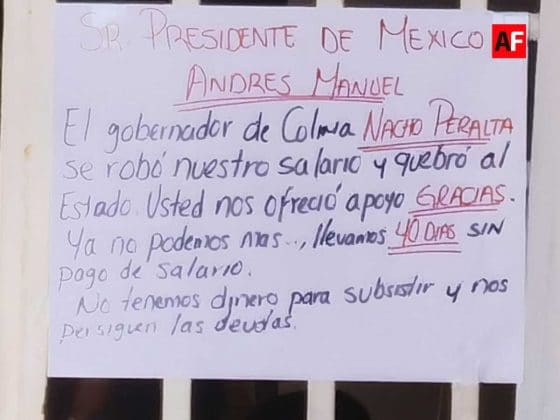 SR. PRESIDENTE DE MEXICO
AF
ANDRES MANUEL
El gobernador de Colima NACHO PERALTA
se robó nuestro salario y quebró al
Estado. Usted nos ofreció apoyo GRACIAS.
Ya no podemos mas..., llevamos 40 DIAS SIN
pago de salario.
No tenemos dinero para subsistir y nos
persiguen las deudas.